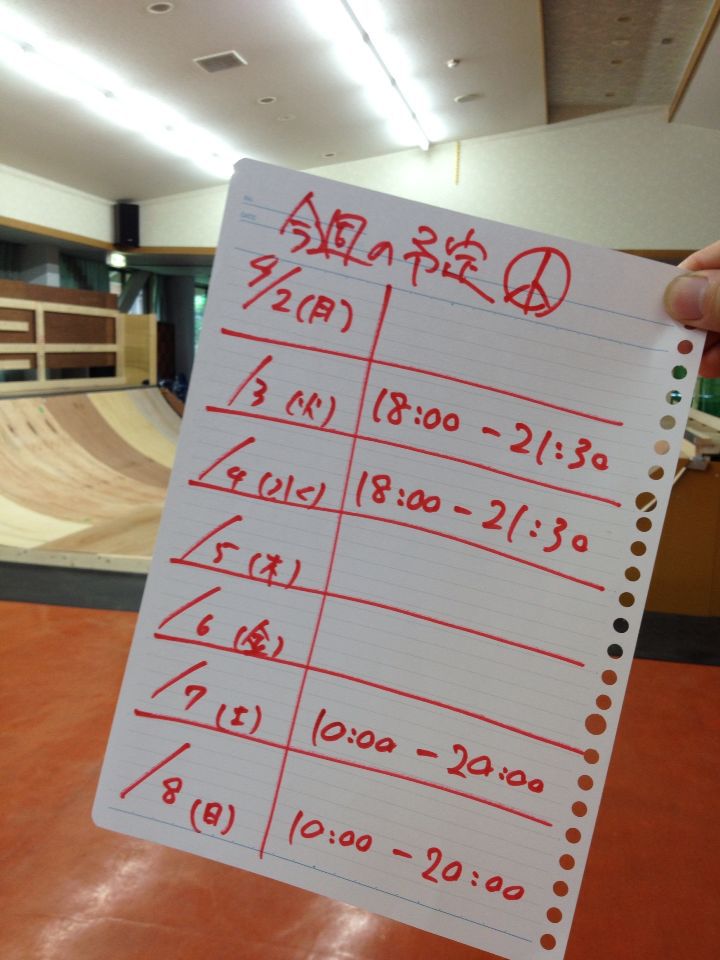 NO.
DATE
今週の予定
4/2(月)
/3(火) 18:00-21:30
/4(水) 18:00-21:30
/5(木)
/6(金)
/7(土) 10:00-20:00
/8(日) 10:00-20:00